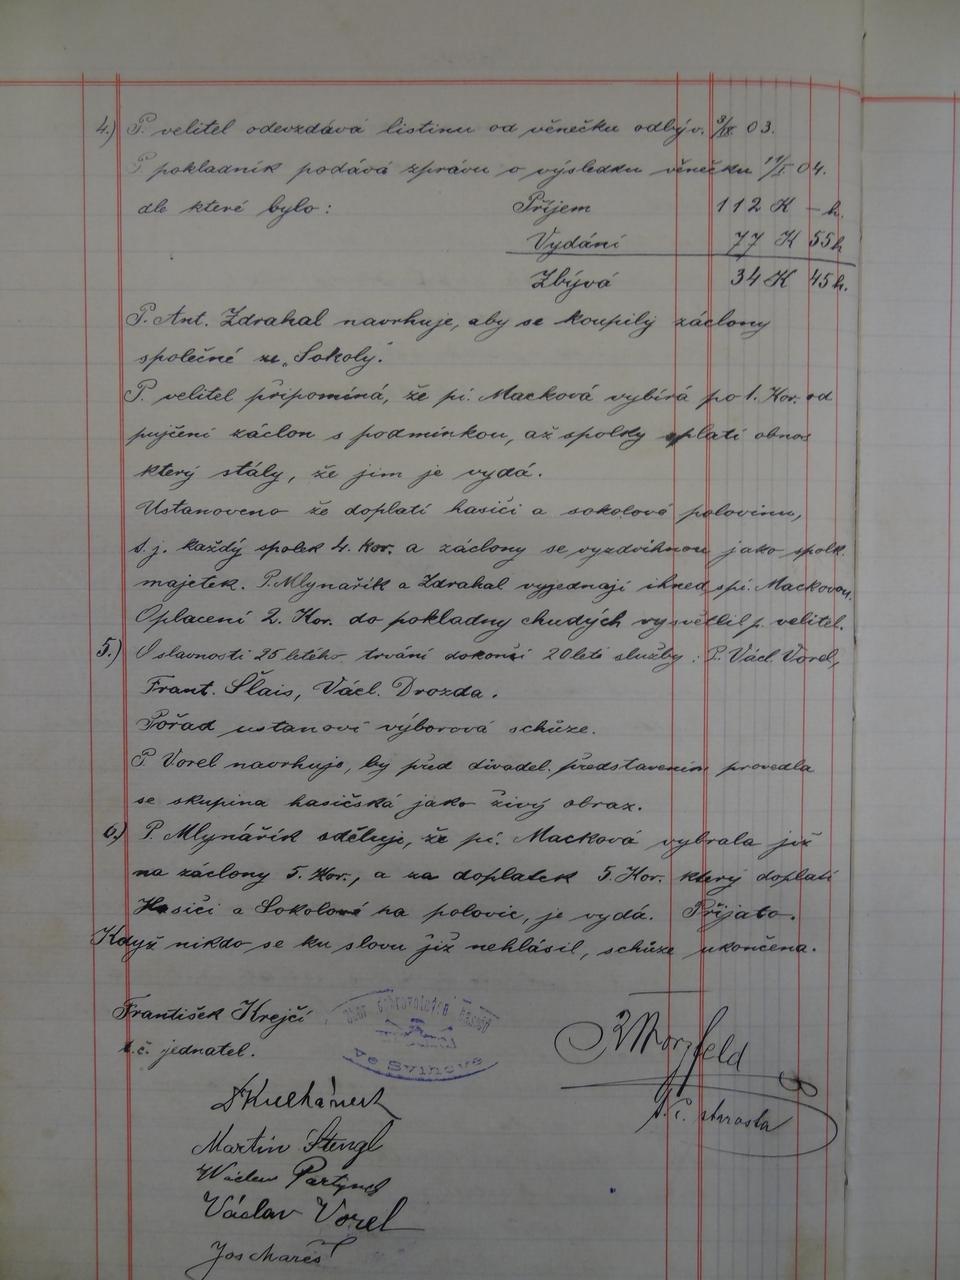 4.) P. velitel odevzdává listinu od věnečku odbýv. 3/IX 03.
P. pokladník podává zprávu o výsledku věnečku 17/I 04.
dle které bylo: Příjem 112 K – h.
Vydání 77 K 55 h
Zbývá 34 K 45 h.
P. Ant. Zdrahal navrhuje, aby se koupily záclony
společné ze „Sokoly".
P. velitel připomíná, že pí. Macková vybírá po 1. Kor. od
pujčení záclon s podmínkou, až spolky splatí obnos
který stály, že jim je vydá.
Ustanoveno že doplatí hasiči a sokolové polovinu,
t.j. každý spolek 4. kor. a záclony se vyzdvihnou jako spolk.
majetek. P. Mlynařík a Zdrahal vyjednají ihned s pí. Mackovou.
Oplacení 2. Kor. do pokladny chudých vysvětlil p. velitel.
5.) O slavnosti 25 letého trvání dokončí 20 leté služby: P. Václ. Vorel,
Frant. Šlais, Václ. Drozda.
Pořad ustanoví výborová schůze.
P. Vorel navrhuje, by před divadel. představením provedla
se skupina hasičská jako živý obraz.
6.) P. Mlynářík sděluje, že pí. Macková vybrala již
na záclony 5. Kor., a za doplatek 5. Kor. který doplatí
Hasiči a Sokolové na polovic, je vydá. Přijato.
Když nikdo se ku slovu již nehlásil, schůze ukončena.
František Krejčí
t.č. jednatel.
Sbor dobrovolných hasičů
ve Svinově
t.č. starosta
Martin Štengl
Václav Vorel
Jos Mareš